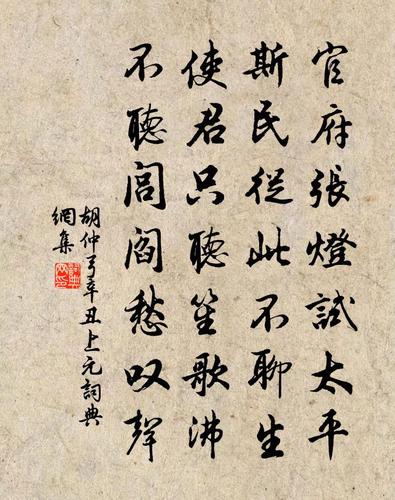 官府張燈試太平
斯民從此不聊生
使君只聽笙歌沸
不聽閭閻愁叹聲
胡仲弓辛丑上元詞典
網集